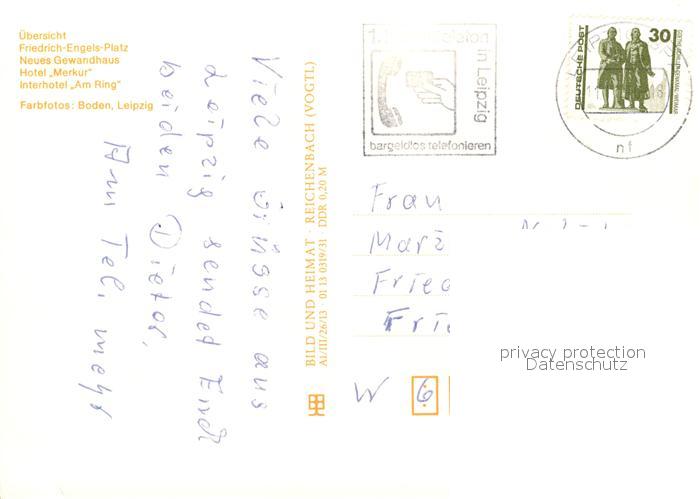 Übersicht
Friedrich-Engels-Platz
Neues Gewandhaus
Hotel „Merkur“
Interhotel „Am Ring“
Farbfotos: Boden, Leipzig
Viele Grüsse aus
Leipzig sendet Euch
beiden Dieter,
Am Tel. mehr
BILD UND HEIMAT · REICHENBACH (VOGTL)
A1/III/26/13 · 01 13 0319/31 · DDR 0,20 M
in Leipzig
bargeldlos telefonieren
DEUTSCHE POST
30
nf
Frau
Mar
Fried
Fri
W 6
privacy protection
Datenschutz